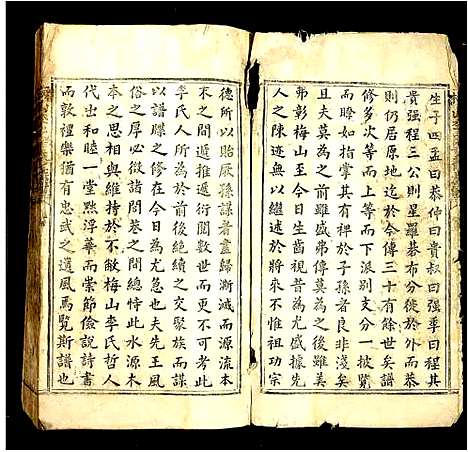 生子四孟曰恭仲曰貴叔曰强季曰程其
貴强程三公則星羅碁布分徙於外而恭
則仍居原地迄於今傳三十有餘世矣譜
修多次而上等而下派別支分一披覽
而瞭如指掌其裨於子孫者良非淺矣
且夫莫為之前雖盛弗傳莫為之後雖美
弗彰梅山至今日生齒視昔為尤盛據先
人之陳迹而無以繼述於將來不惟祖功宗
德所以貽厥孫謀者盡歸漸滅而源流本
末之間遞推遞衍閱數世而更不可考
李氏人所為於前後絕續之交聚族而謀
以譜牒之修在今日為尤急也夫先王風
俗之厚必徵諸閭巷之間總恃此水源木
本之思相與維持於不敝梅山李氏哲人
代出和睦一堂黜浮華而崇節儉說詩書
而敦禮樂猶有忠武之遺風焉覽斯譜也